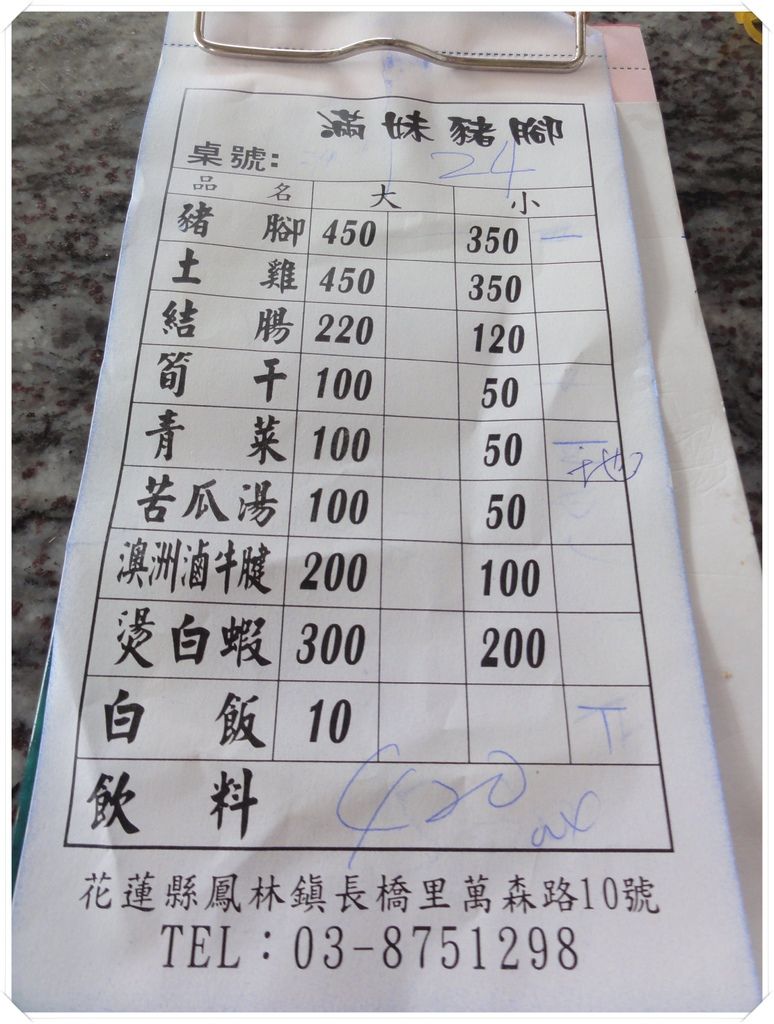 滿妹豬腳
桌號: 24
品名 大 小
豬腳 450 350 一
土雞 450 350
結腸 220 120
筍干 100 50
青菜 100 50 一 地
苦瓜湯 100 50
澳洲滷牛腱 200 100
燙白蝦 300 200
白飯 10 T
飲料 420
花蓮縣鳳林鎮長橋里萬森路10號
TEL：03-8751298